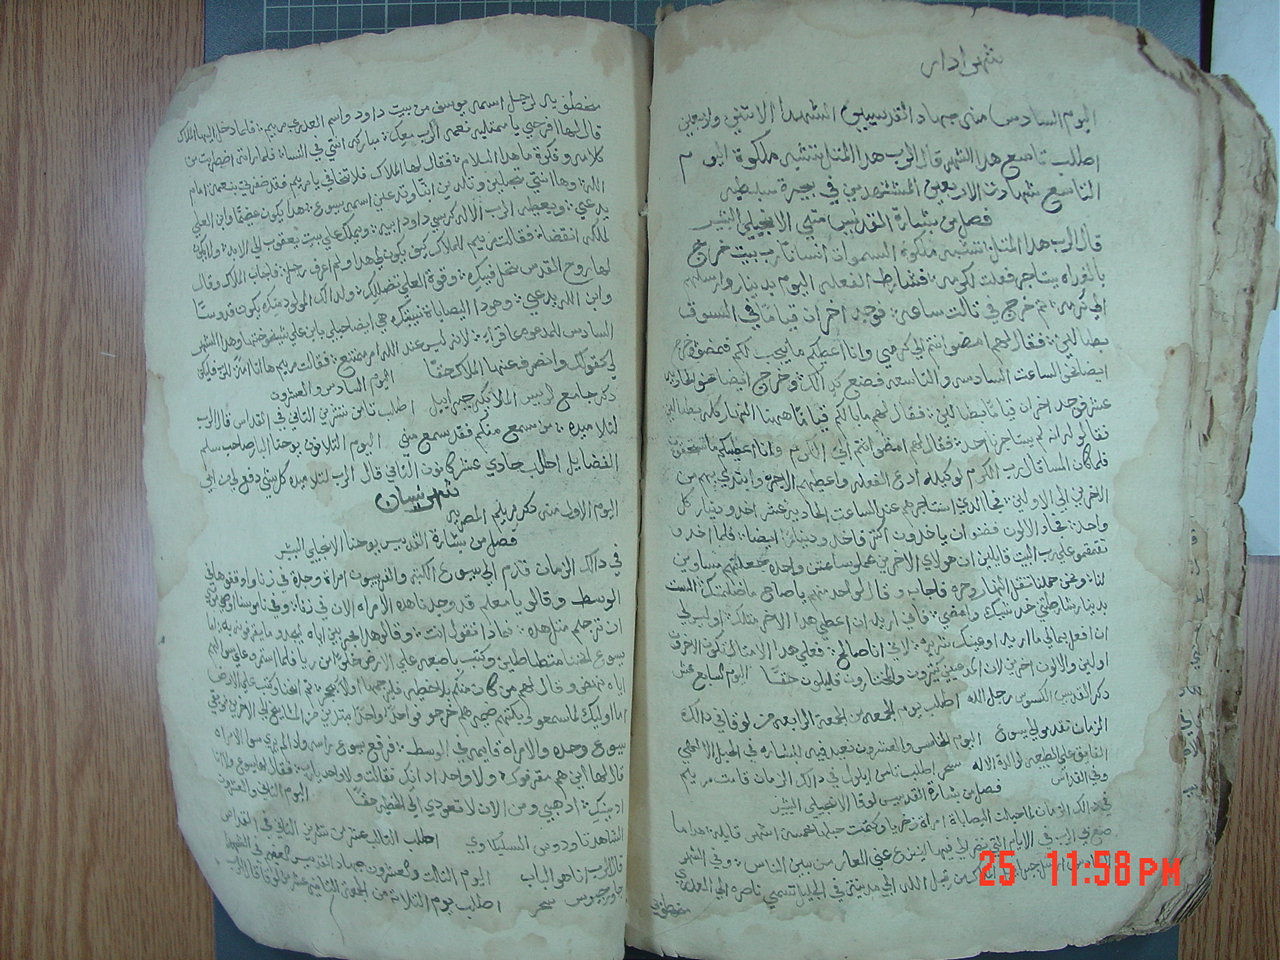 شهر ادار
اليوم السادس منه جهاد القديسين الشهدا الاتنين واربعين
اطلب تاسع هدا الشهر قال الرب هدا المتل تتشبه ملكوة اليوم
التاسع شهادت الاربعين المستشهدين في بحيرة سبسطيه
فصل من بشارة القديس متي الانجيلي البشير
قال الرب هدا المتل تتشبه ملكوة السموات انسانا رب بيت خرج
بالغداه يستاجر فعلت لكرمه فشارط الفعله اليوم بدينار وارسلهم
الي كرمه تم خرج في تالت ساعه فوجد اخران قيامًا في السوق
بطالين فقال لهم امضوا انتم الي كرمي وانا اعطيكم ما يجب لكم فمضو وخرج
ايضا نحو الساعت السادسه والتاسعه فصنع كدالك وخرج ايضا نحو الحاديه
عشر فوجد اخران قيامًا بطالين فقال لهم ما بالكم قيامًا هاهنا النهار كله بطالين
فقالو له انه لم يستاجرنا احد فقال لهم امضوا انتم الي الكرم وانا اعطيكم ما تستحقون
فلما كان المسا قال رب الكرم لوكيله ادع الفعله واعطيهم الاجره وابتدي بهم من
الاخرين الي الاولين فجا الدي استاجرهم عند الساعت الحاديه عشر اخدو دينار كل
واحد فجاو الاولون فضنو ان ياخدون اكتر فاخدو دينار ايضا فلما اخدو
تقمقمو علي رب البيت قايلين ان هولاي الاخرين عملو ساعتن واحده فجعلتهم مساوين
لنا ونحن حملنا تقل النهار وحره فاجاب وقال لواحد منهم يا صاح ما ظلمتك الست
بدينار شارطتني خد شيك وامضي فاني اريد ان اعطي هدا الاخر متلك او ليس لي
ان افعل بمالي ما اريد او عينك شريره لاني انا صالح فعلي هدا الامتال تكون الاخرون
اولين والاولون اخرين لان المدعيين كتيرون والمختارون قليلون حقًا اليوم السابع عشر
دكر القديس الكسيوس رجل الله اطلب يوم الجمعه من الجمعة الرابعه من لوقا في دالك
الزمان تقدمو الي يسوع اليوم الخامس والعشرون نعيد فيه للبشاره في الجيل الانجيلي
الفايق علي الطبيعه لوالدة الاله سحر اطلب تامن ايلول في دالك الزمان قامت مريم
وفي القداس فصل من بشارة القديس لوقا الانجيلي البشير
في دالك الزمان لما حبلت اليصابات امراة زخريا وكتمت حبلها خمسة اشهر قايله هدا ما
صنع بي الرب في الايام التي نضر الي فيها لينزع عني العار من بين الناس وفي الشهر
السادس ارسل جبراييل الملاك من قبل الله الي مدينة في الجليل تسمي ناصره الي العدري
مخطوبه
مخطوبه لرجل اسمه يوسف من بيت داود واسم العدري مريم فلما دخل اليها الملاك
قال لها افرحي يا ممتليه نعمه الرب معك مباركه انتي في النسا فلما راته اضطربت من
كلامه وفكرة ما هدا السلام فقال لها الملاك لا تخافي يا مريم فقد ضفرتي بنعمة امام
الله وها انتي تحبلين وتلدين ابنًا وتدعين اسمه يسوع هدا يكون عضيمًا وابن العلي
يدعي ويعطيه الرب الاله كرسي داود ابيه ويملك علي بيت يعقوب الي الابد ولا يكون
لملكه انقضا فقالت مريم للملاك كيف يكون لي هدا ولم اعرف رجل فاجاب الملاك وقال
لها روح القدس تحل فيكي وقوة العلي تضللك ولدالك المولود منك يكون قدوسًا
وابن الله يدعي وهودا اليصابات نسيبتك هي ايضا حبلي بابن علي شيخوختها وهدا الشهر
السادس للمدعوه عاقرا لانه ليس عند الله امر ممتنع فقالت مريم ها انا امة للرب فليكن
لي كقولك وانصرف عنها الملاك حقًا اليوم السادس والعشرون
دكر جامع لرييس الملايكه جبراييل اطلب تامن تشرين التاني في القداس قال الرب
لتلاميده من سمع منكم فقد سمع مني اليوم التلاتون يوحنا البار صاحب سلم
الفضايل اطلب حادي عشر كانون التاني قال الرب لتلاميده كل شي دفع لي من ابي
شهر نيسان
اليوم الاول منه دكر مريم المصريه
فصل من بشارة القديس يوحنا الانجيلي البشير
في دالك الزمان قدم الي يسوع الكتبه والفريسيون امراة وجدة في زنا واوقفوها في
الوسط وقالو يا معلم قد وجدنا هده الامراه الان في زنا وفي ناموسنا اوصي موسي
ان ترجم متل هده فمادا تقول انت وقالو هدا مجربين اياه ليجدو ما يقرفونه به اما
يسوع انحنا متطاطيا وكتب باصبعه علي الارض خطوط من ريا فلما استمرو علي سوالهم
اياه نهض وقال لهم من كان منكم بلا خطيه فليرجمها اولا بحجر تم انحنا وكتب علي الارض
اما اوليك لما سمعو ليبكتهم ضميرهم خرجو فواحدًا واحدًا مبتدين من المشايخ الي الاخرين وبقي
يسوع وحده والامراه قايمه في الوسط فرفع يسوع راسه ولم يري سوا الامراه
قال لها اين هم مقرفوكي ولا واحد ادانك فقالت ولا واحد يا رب فقال لها يسوع ولا انا
ادينك ادهبي ومن الان لا تعودي الي الخطيه حقًا اليوم التاني والعشرون
الشاهد تاودوس السيكاوي اطلب التالت عشر من تشرين التاني في القداس
قال الرب انا هو الباب اليوم التالت والعشرون جهاد القديس العضيم في الشهدا
جاورجيوس سحر اطلب يوم التلاته من الجمعه التانيه عشر من لوقا قال الرب
25 11:58 PM